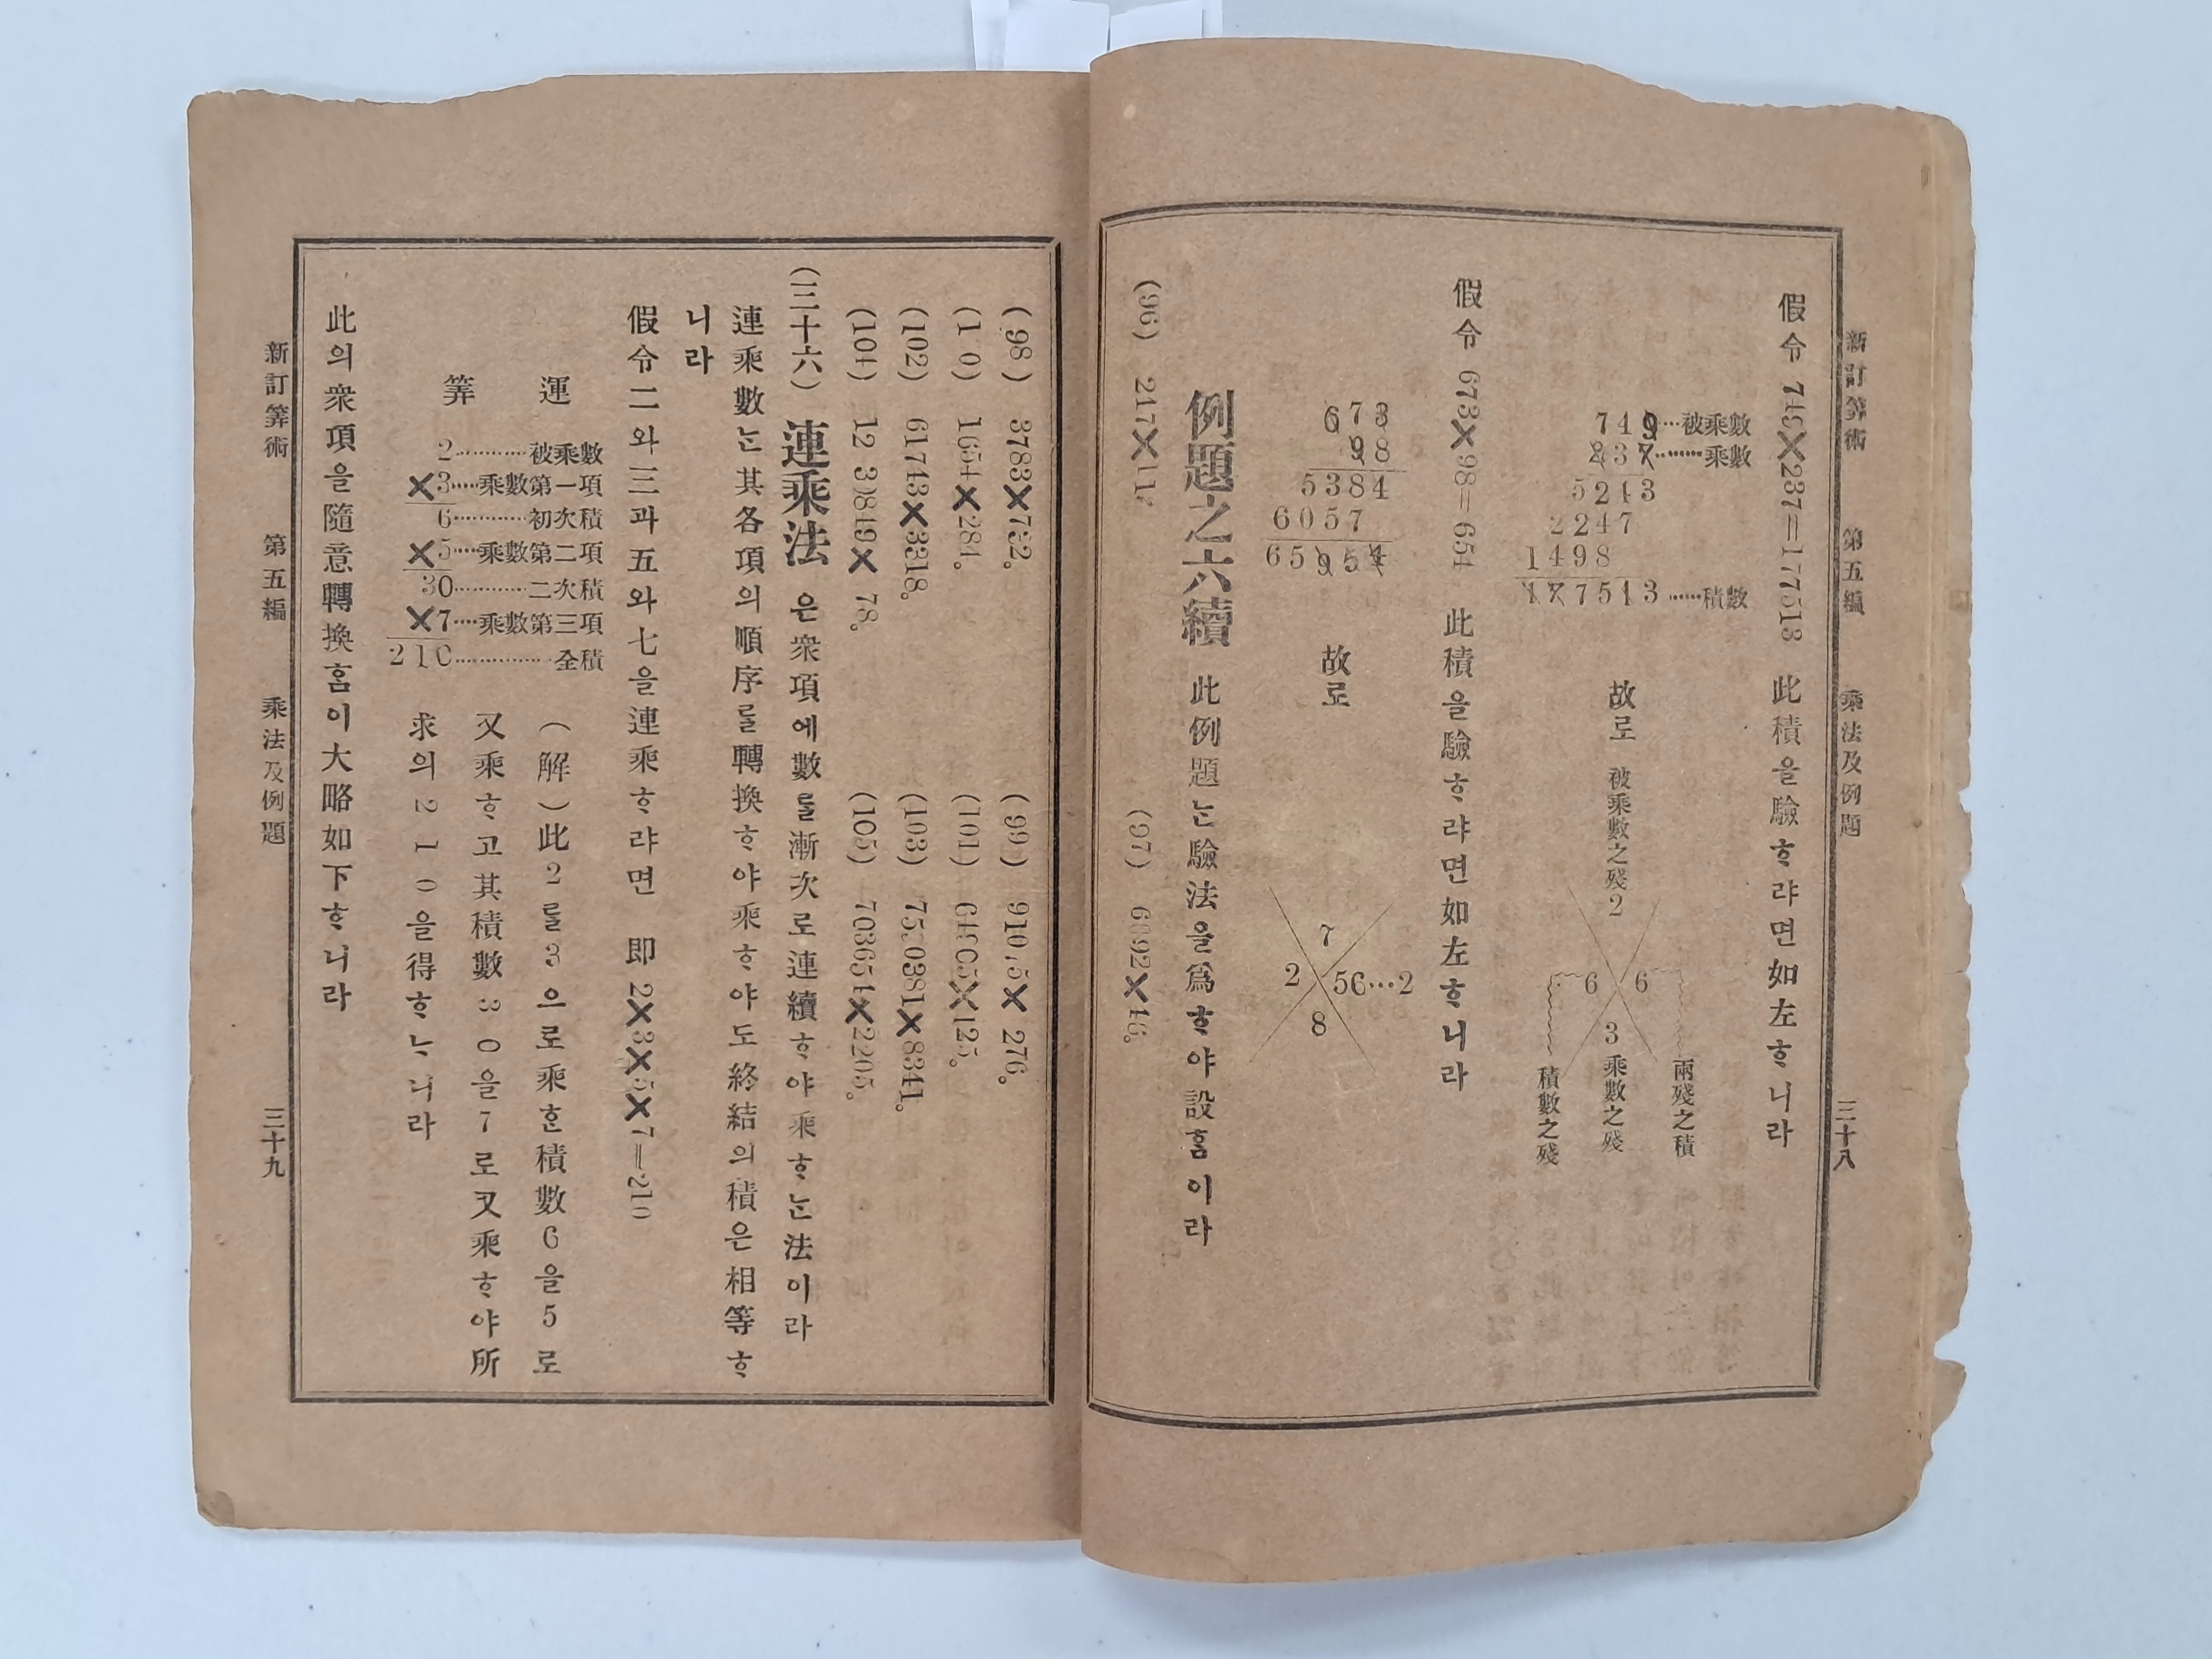 新訂筭術 第五編 乘法及例題 三十八
假令 749×237=177513 此積을驗ᄒᆞ랴면如左ᄒᆞ니라
749…被乘數
237………乘數
5243
2247
1498
177513……積數
故로
被乘數之殘2
6 6
3乘數之殘
兩殘之積
積數之殘
假令 673×98=65954 此積을驗ᄒᆞ랴면如左ᄒᆞ니라
673
98
5384
6057
65954
故로
7
2 56…2
8
例題之六續 此例題ᄂᆞᆫ驗法을爲ᄒᆞ야設홈이라
(96) 217×11。
(97) ×46。
(98) 3783×752。
(99) × 276。
1654×284。
(101) ×125。
(102) 61743×3318。
(103) ×8341。
(104) × 78。
(105) 703654×2205。
(三十六) 連乘法 은衆項에數를漸次로連續ᄒᆞ야乘ᄒᆞᄂᆞᆫ法이라
連乘數ᄂᆞᆫ其各項의順序를轉換ᄒᆞ야乘ᄒᆞ야도終結의積은相等ᄒᆞ
니라
假令二와三과五와七을連乘ᄒᆞ랴면 卽 2×3×5×7=210
運筭
2…………被乘數
×3……乘數第一項
6…………初次積
×5……乘數第二項
30…………二次積
×7……乘數第三項
210……………全積
(解)此2를3으로乘ᄒᆞᆫ積數6을5로
又乘ᄒᆞ고其積數30을7로又乘ᄒᆞ야所
求의210을得ᄒᆞᄂᆞ니라
此의衆項을隨意轉換홈이大略如下ᄒᆞ니라
新訂筭術 第五編 乘法及例題 三十九